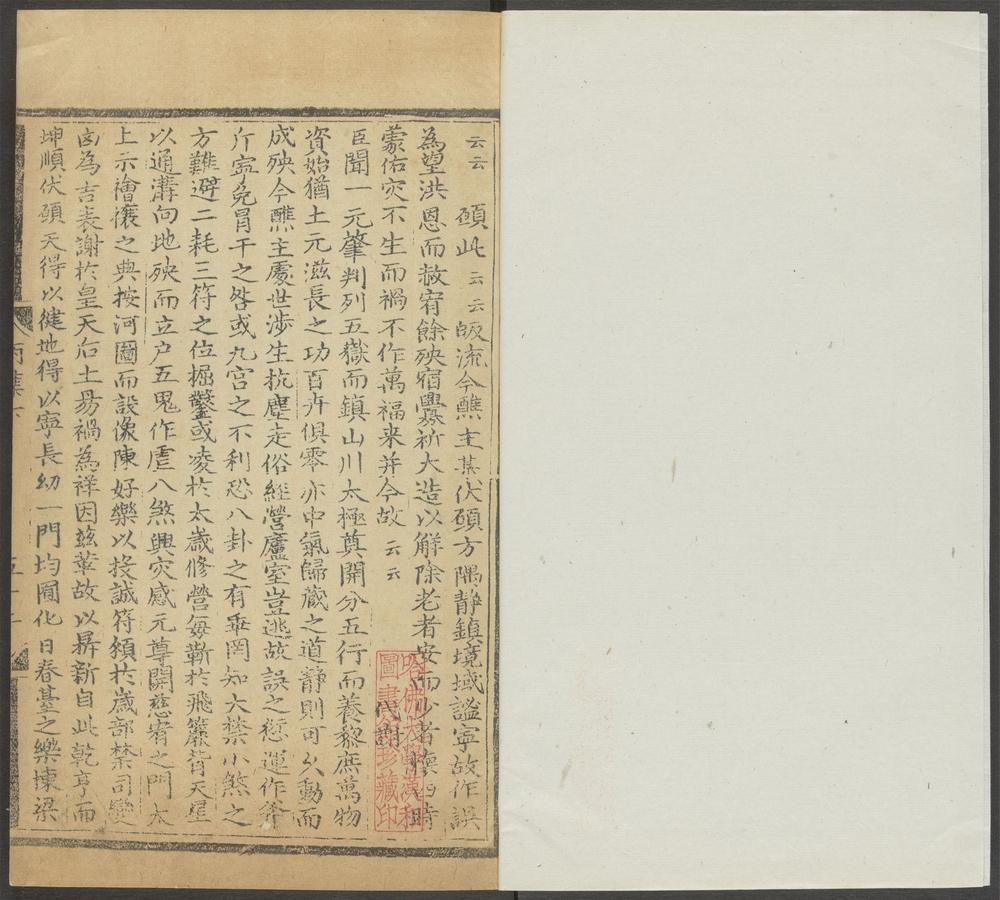 云云　願此云云皈流今醮主某伏願方隅靜鎮境域謐寧故作誤
為望洪恩而赦宥餘殃宿釁祈大造以解除老者安而少者懷四時
蒙佑灾不生而禍不作萬福来并今故云云　代謝
臣聞一元肇判列五嶽而鎮山川太極奠開分五行而養黎庶萬物
資始猶土元滋長之功百卉俱零亦中氣歸藏之道靜則可久動而
成殃今醮主處世涉生抗塵走俗經營廬室豈逃故誤之愆運作斧
斤寧免冒干之咎或九宮之不利恐八卦之有乖罔知大禁小煞之
方難避二耗三符之位掘鑿或凌於太歲修營每蘄於飛簾背天星
以通溝向地殃而立户五鬼作虐八煞興灾感元尊開慈宥之門太
上示禬禳之典按河圖而設像陳好樂以投誠符頒於歲部禁司變
凶為吉表謝於皇天后土易禍為祥因兹革故以昇新自此乾亨而
坤順伏願天得以健地得以寧長幼一門均囿化日春臺之樂棟梁
哈佛大學漢和
圖書館珍藏印